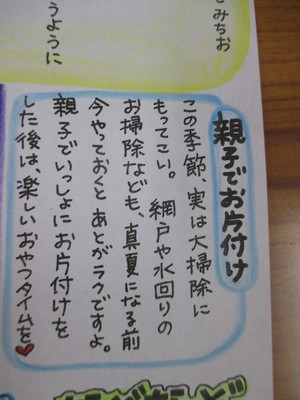 みちお
うように
親子でお片付け
この季節、実は大掃除に
もってこい。網戸や水回りの
お掃除なども、真夏になる前
今やっておくとあとがラクですよ。
親子でいっしょにお片付けを
した後は、楽しいおやつタイムを♥